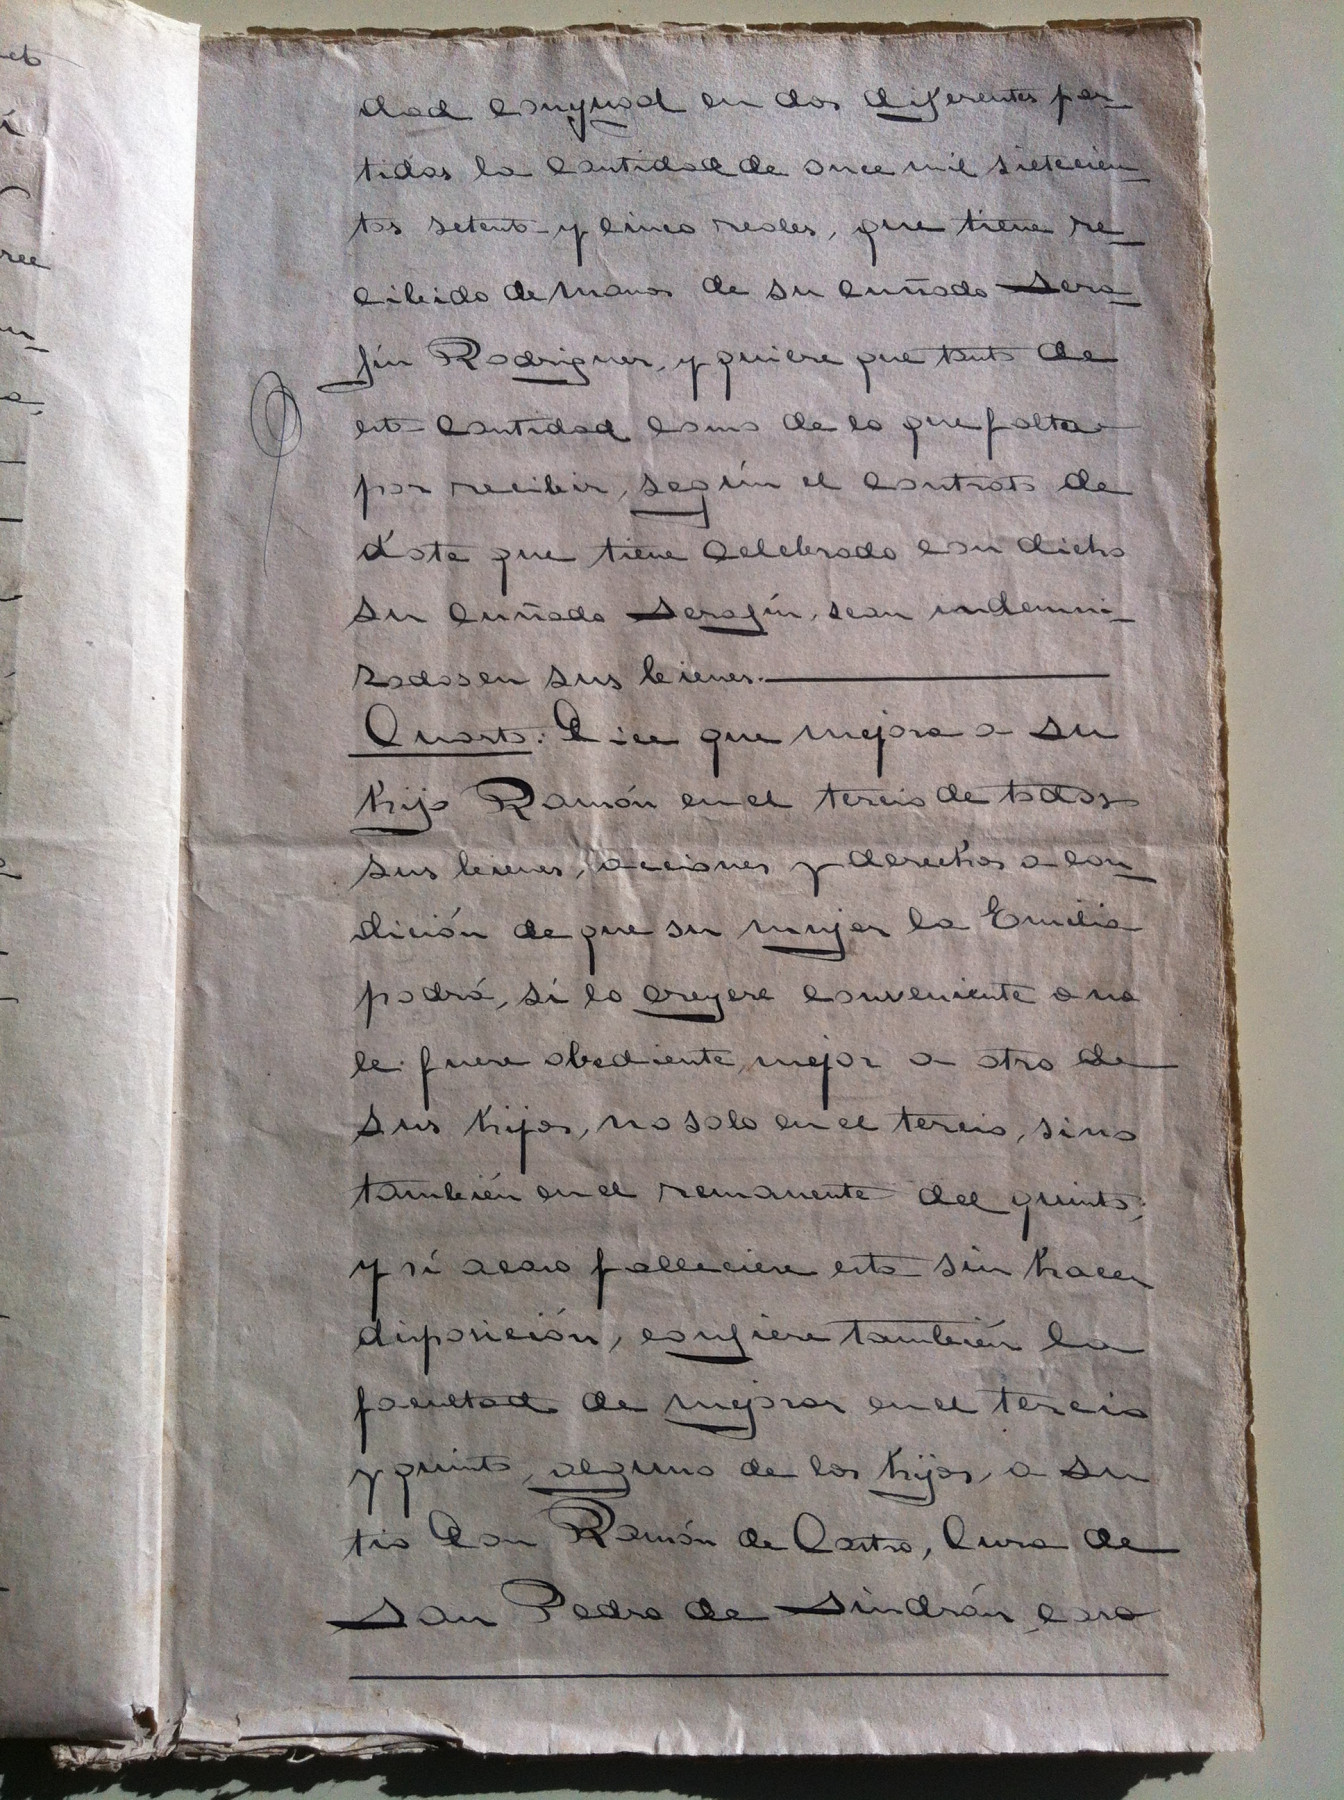 dad conyugal en dos diferentes par-
tidas la cantidad de once mil setecien-
tos setenta y cinco reales, que tiene re-
cibido de manos de su cuñado Sera-
fín Rodriguez, y quiere que tanto de
esta cantidad como de lo que falta
por recibir, según el contrato de
dote que tiene celebrado con dicho
su cuñado Serafín, sean indemni-
zados en sus bienes.
Cuarto: Dice que mejora a su
hijo Ramón en el tercio de todos
sus bienes, acciones y derechos a con-
dición de que su mujer la Emilia
podrá, si lo creyere conveniente o no
le fuere obediente, mejor a otro de
sus hijos, no solo en el tercio, sino
también en el remanente del quinto;
y sí acaso falleciere esta sin hacer
disposición, confiere también la
facultad de mejorar en el tercio
y quinto, alguno de los hijos, a su
tio Don Ramón de Castro, Cura de
San Pedro de Sindrán, caso